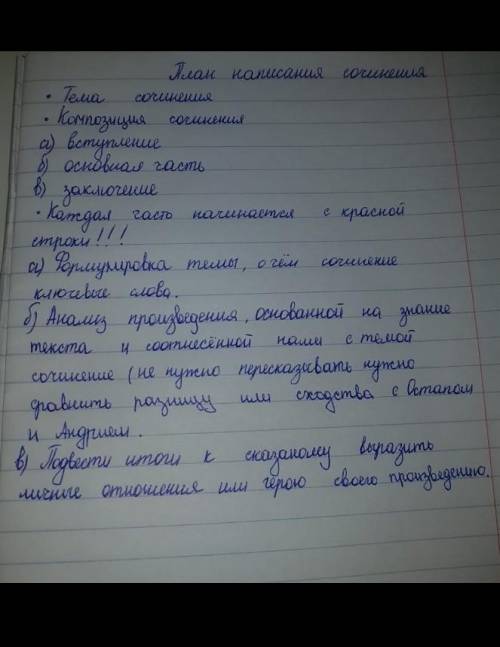 План написания сочинения
• Тема сочинения
• Композиция сочинения
а) вступление
б) основная часть
в) заключение
• Каждая часть начинается с красной
строки!!!
а) Формулировка темы, о чём сочинение
ключевые слова.
б) Анализ произведения, основанной на знание
текста и соотнесённой нами с темой
сочинение (не нужно пересказывать нужно
сравнить разницу или сходства с Остапом
и Андрием.
в) Подвести итоги к сказаному выразить
личные отношения или герою своего произведению.